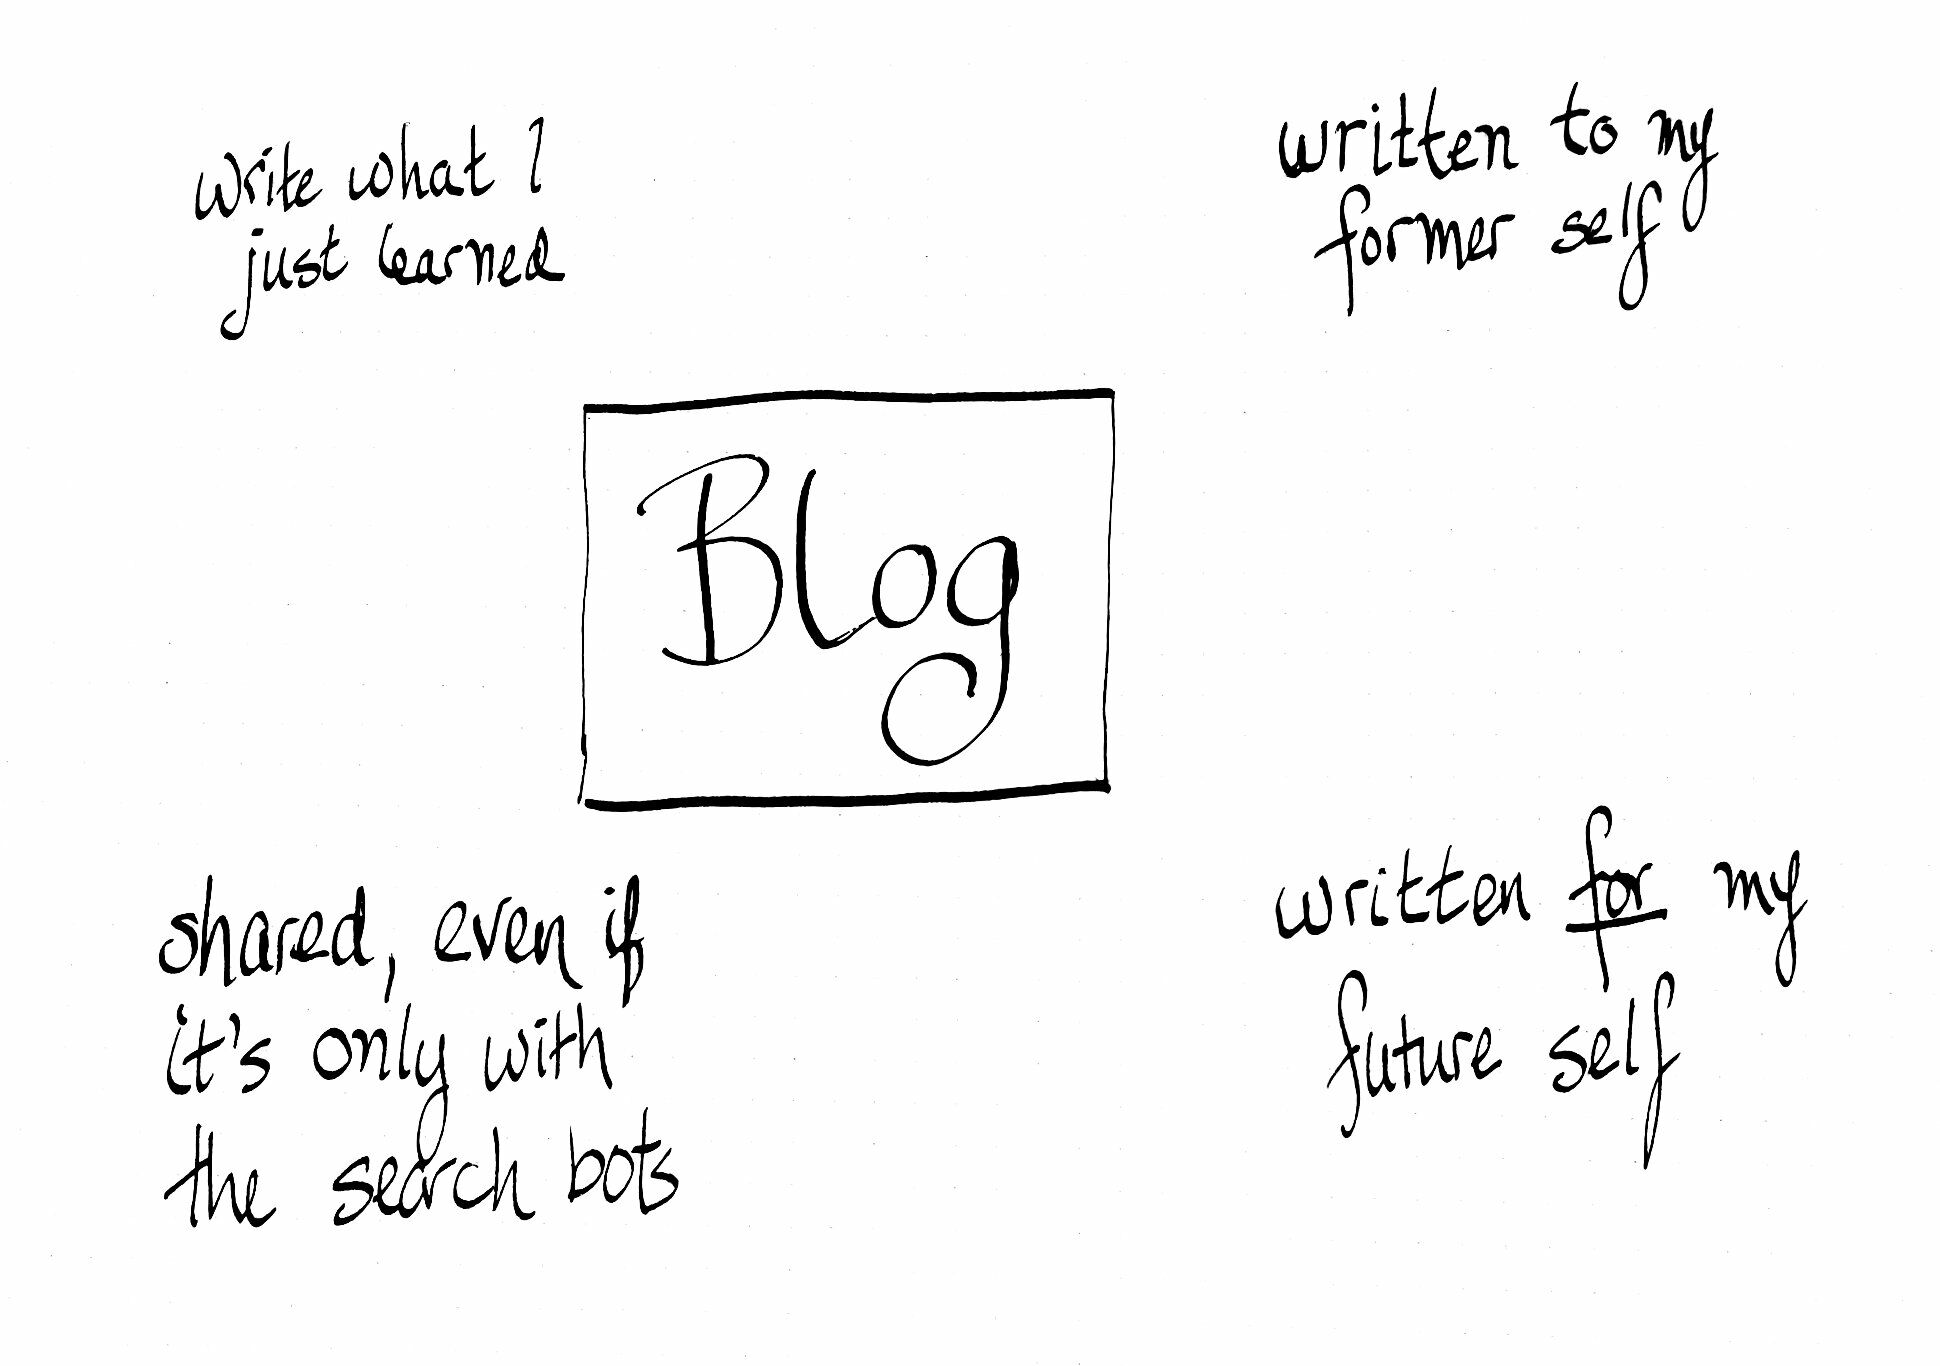 write what I
just learned
written to my
former self
Blog
shared, even if
it's only with
the search bots
written for my
future self